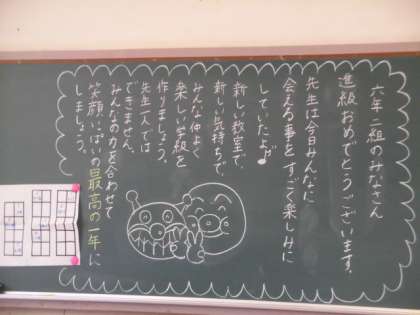 六年二組のみなさん
進級おめでとうございます。
先生は今日みんなに
会える事をすごく楽しみに
していたよ♪
新しい教室で、
新しい気持ちで、
みんな仲よく
楽しい学級を
作りましょう。
先生一人では
できません。
みんなの力を合わせて
笑顔いっぱいの最高の一年に
しましょう。